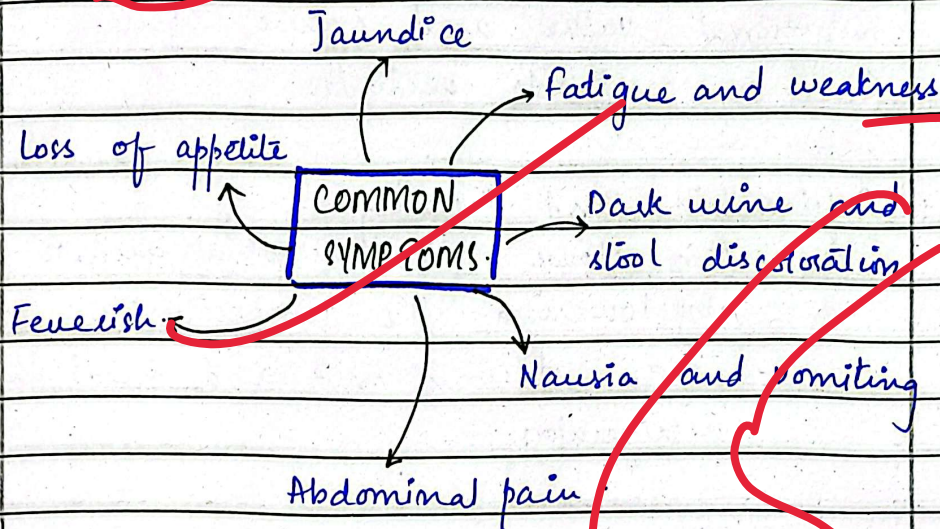 Jaundice
Fatigue and weakness
Loss of appetite
COMMON
SYMPTOMS.
Dark urine and
stool discoloration
Feverish.
Nausia and vomiting
Abdominal pain.